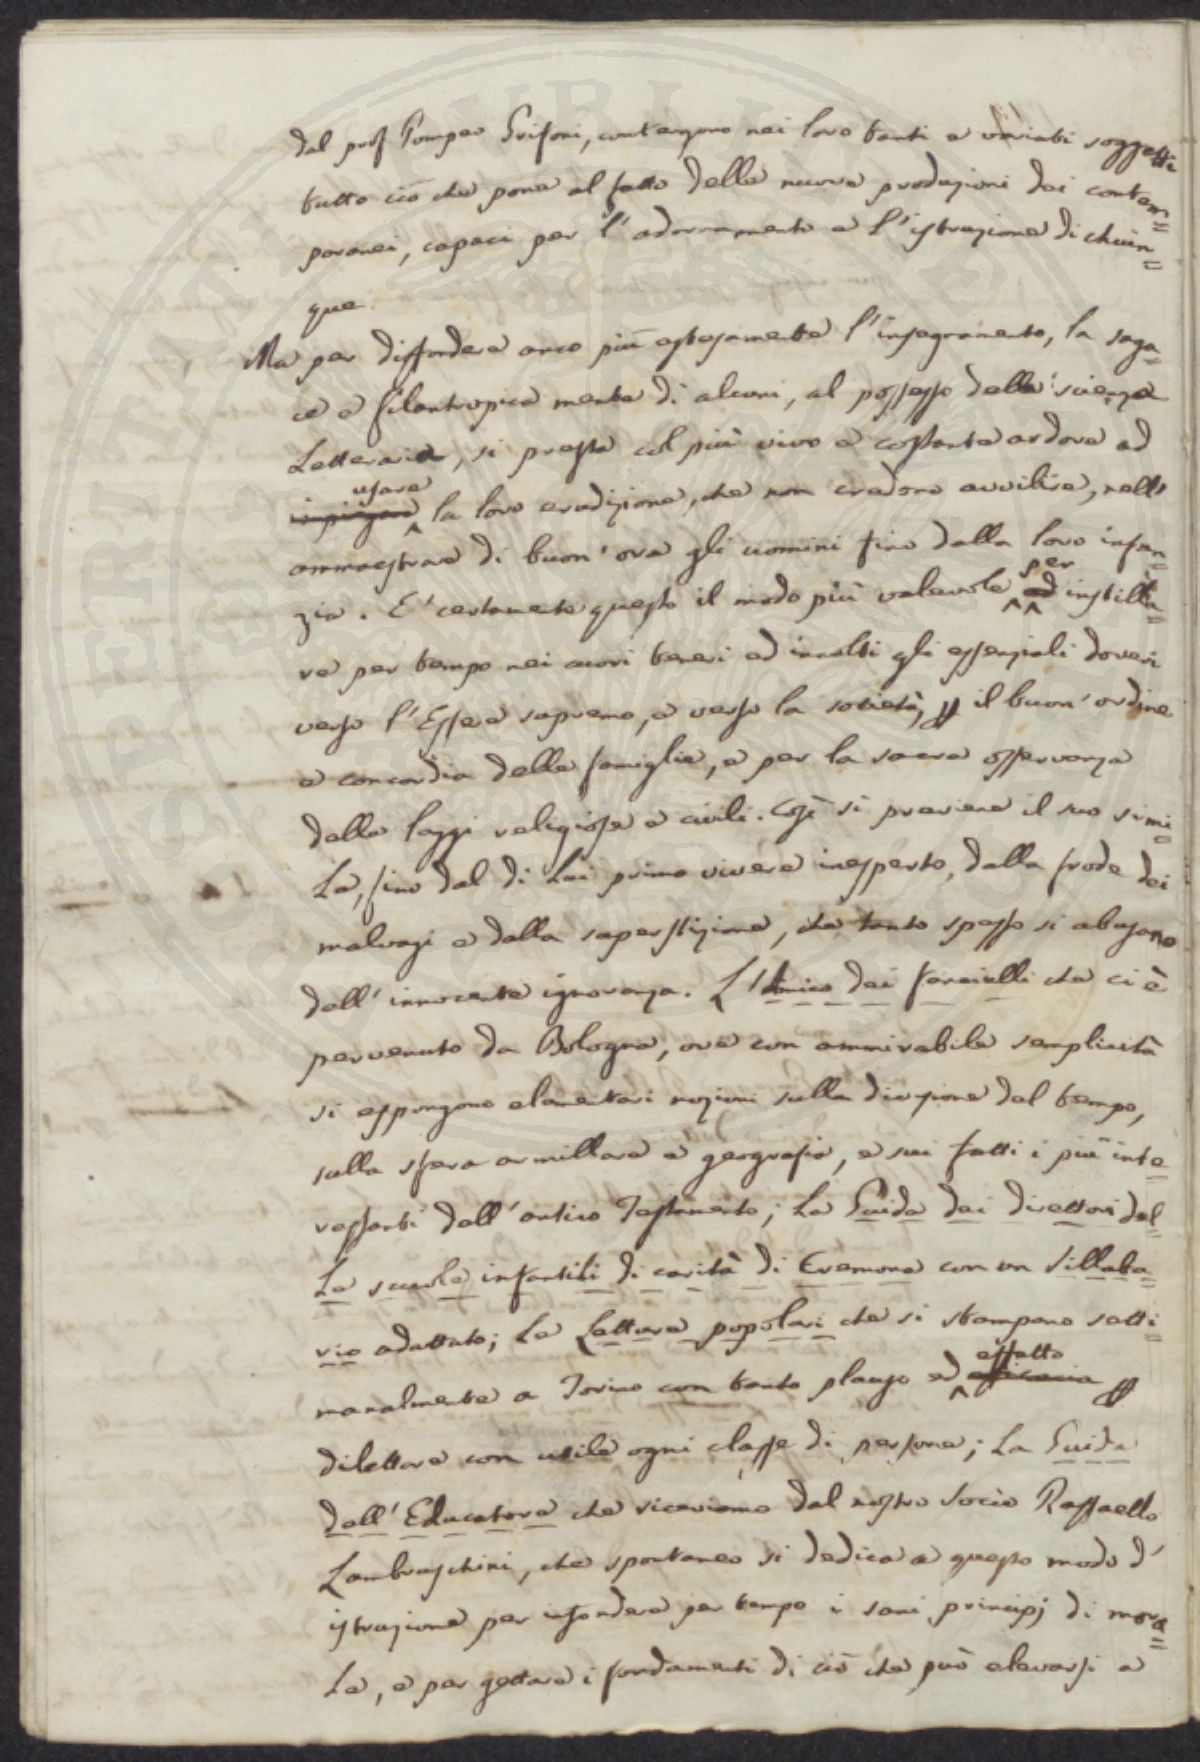 dal prof Pompeo Grifoni, contengono nei loro tanti e variati soggetti
tutto ciò che pone al fatto delle nuove produzioni dei contem=
poranei, capaci per l'adornamento e l'istruzione di chiun=
que.
Ma per diffondere anco più estesamente l'insegnamento, la saga=
ce e filantropica mente di alcuni, al possesso delle scienze
Letterarie, si presta col più vivo e costante ardore ad
usare
impiegare la loro erudizione, che non credono avvilire, nell'
ammaestrare di buon'ora gli uomini fino dalla loro infan=
per
zia. E' certamente questo il modo più valevole ad instilla=
re per tempo nei cuori teneri ed incolti gli essenziali doveri
verso l'Essere supremo, e verso la società, p il buon'ordine
e concordia delle famiglie, e per la sacra osservanza
delle leggi religiose e civili. Così si previene il suo simi=
Le, fino dal di Lui primo vivere inesperto, dalla frode dei
malvagi e dalla superstizione, che tanto spesso si abusano
dell'innocente ignoranza. L'Amico dei fanciulli che ci è
pervenuto da Bologna, ove con ammirabile semplicità
si espongono elementari nozioni sulla divisione del tempo,
sulla sfera armillare e geografia, e sui fatti i più inte=
ressanti dell'antico Testamento; La Guida dei direttori del=
Le scuole infantili di carità di Cremona con un Sillaba=
rio adattato; Le Letture popolari che si stampano setti=
effetto
manalmente a Torino con tanto plauso ed efficacia p
dilettare con utile ogni classe di persone; La Guida
dell'Educatore che riceviamo dal nostro Socio Raffaello
Lambruschini, che spontaneo si dedica a questo modo d'
istruzione per infondere per tempo i sani principj di mora=
Le, e per gettare i fondamenti di ciò che può elevarsi a